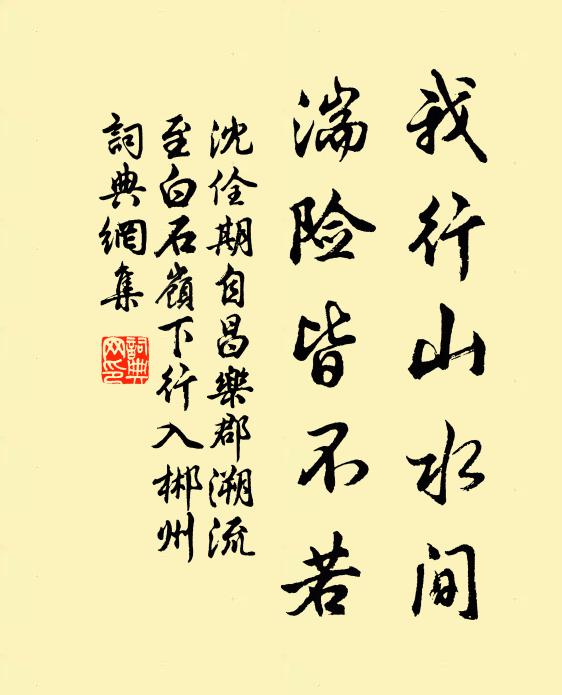 我行山水間
湍险皆不若
沈佺期自昌樂郡溯流
至白石嶺下行入郴州
詞典網集
詞典網印